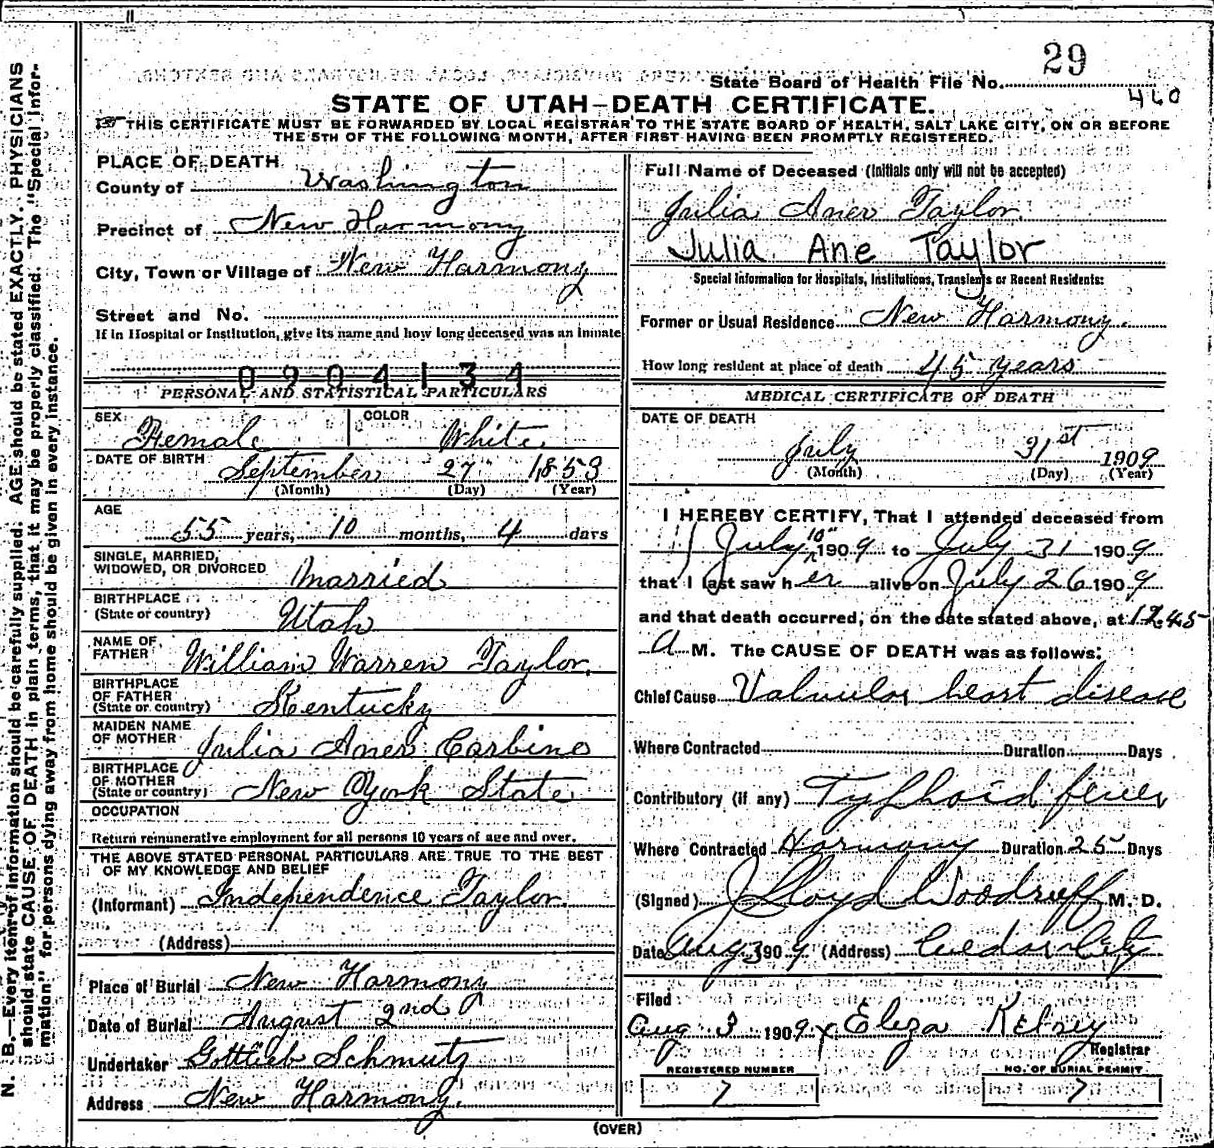 29
State Board of Health File No.
460
STATE OF UTAH—DEATH CERTIFICATE.
THIS CERTIFICATE MUST BE FORWARDED BY LOCAL REGISTRAR TO THE STATE BOARD OF HEALTH, SALT LAKE CITY, ON OR BEFORE
THE 5TH OF THE FOLLOWING MONTH, AFTER FIRST HAVING BEEN PROMPTLY REGISTERED.
N. B.—Every item of information should be carefully supplied. AGE should be stated EXACTLY. PHYSICIANS
should state CAUSE OF DEATH in plain terms, that it may be properly classified. The "Special Infor-
mation" for persons dying away from home should be given in every instance.
PLACE OF DEATH
County of Washington
Precinct of New Harmony
City, Town or Village of New Harmony
Street and No.
If in Hospital or Institution, give its name and how long deceased was an inmate
0904134
PERSONAL AND STATISTICAL PARTICULARS
SEX Female COLOR White
DATE OF BIRTH September 27 1853
(Month) (Day) (Year)
AGE
55 years, 10 months, 4 days
SINGLE, MARRIED,
WIDOWED, OR DIVORCED Married
BIRTHPLACE
(State or country) Utah
NAME OF
FATHER William Warren Taylor.
BIRTHPLACE
OF FATHER
(State or country) Kentucky
MAIDEN NAME
OF MOTHER Julia Aner Carbine
BIRTHPLACE
OF MOTHER
(State or country) New York State
OCCUPATION
Return remunerative employment for all persons 10 years of age and over.
THE ABOVE STATED PERSONAL PARTICULARS ARE TRUE TO THE BEST
OF MY KNOWLEDGE AND BELIEF
(Informant) Independence Taylor.
(Address)
Place of Burial New Harmony
Date of Burial August 2nd
Undertaker Gottlieb Schmutz
Address New Harmony.
Full Name of Deceased (Initials only will not be accepted)
Julia Aner Taylor
Julia Ane Taylor
Special Information for Hospitals, Institutions, Transients or Recent Residents:
Former or Usual Residence New Harmony.
How long resident at place of death 45 years
MEDICAL CERTIFICATE OF DEATH
DATE OF DEATH
July 31st 1909
(Month) (Day) (Year)
I HEREBY CERTIFY, That I attended deceased from
July 10 1909 to July 31 1909
that I last saw her alive on July 26 1909
and that death occurred, on the date stated above, at 12.45
A M. The CAUSE OF DEATH was as follows:
Chief Cause Valvular heart disease
Where Contracted Duration Days
Contributory (if any) Tyfhoid fever
Where Contracted Harmony Duration 25 Days
(Signed) J Lloyd Woodruff M. D.
Date Aug 3 1909 (Address) Cedar City
Filed
Aug 3 1909 x Eliza Kelsey
Registrar
REGISTERED NUMBER NO. OF BURIAL PERMIT
7 7
(OVER)